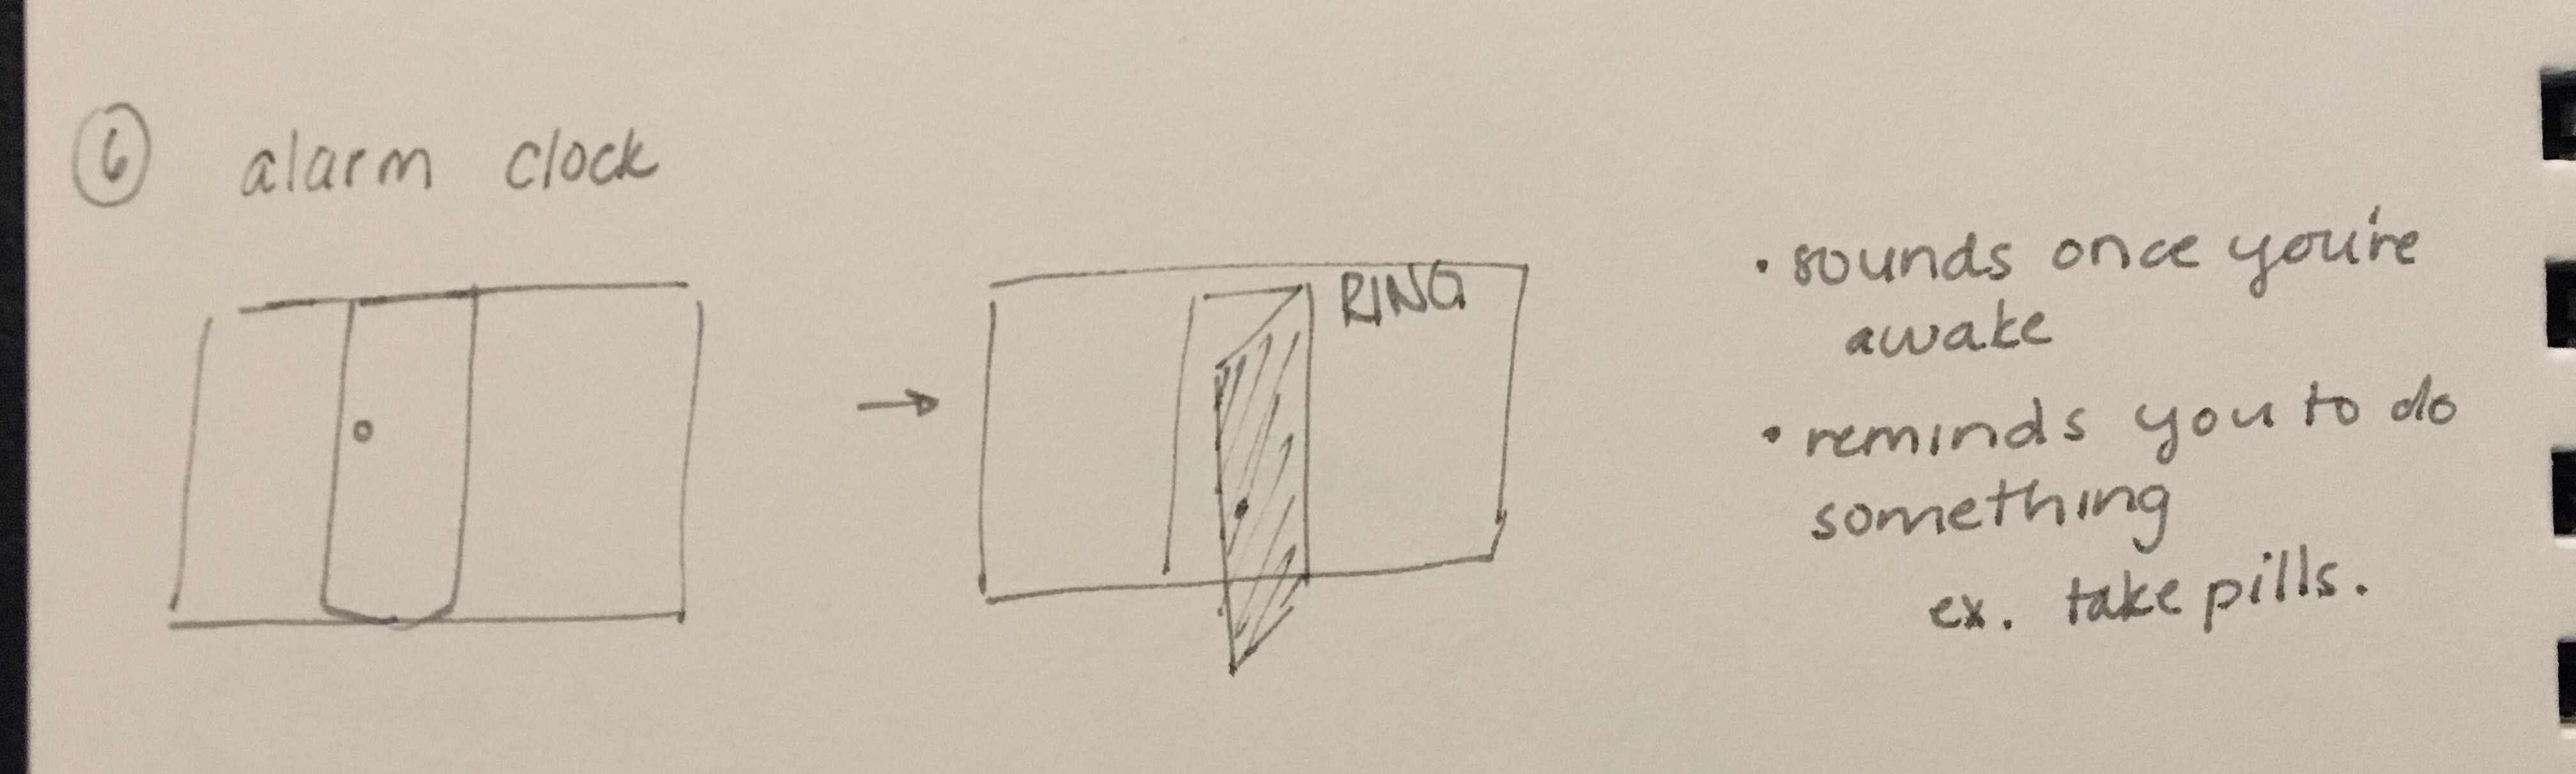 6 alarm clock
RING
· sounds once you're
awake
· reminds you to do
something
ex. take pills.